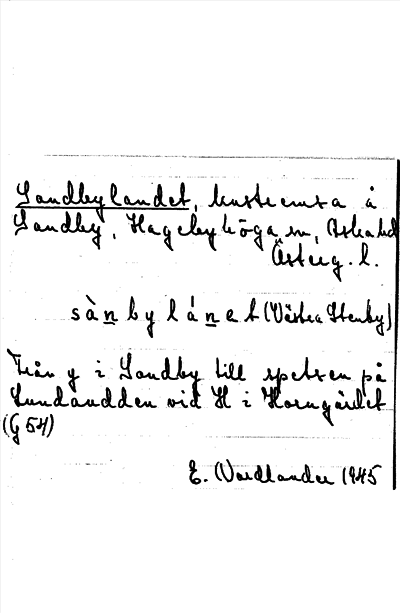 Sandbylandet, kustremsa å
Sandby, Hagebyhöga sn, Aska hd
Österg. l.
sànbylánet (Västra Stenby)
Från y i Sandby till spetsen på
Sundaudden vid H i Horngärdet
(G 54)
E. Nordlander 1945